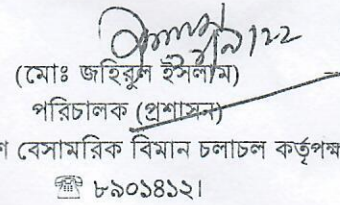 (মোঃ জহিরুল ইসলাম)
পরিচালক (প্রশাসন)
বেসামরিক বিমান চলাচল কর্তৃপক্ষ
☎ ৮৯০১৪১২।